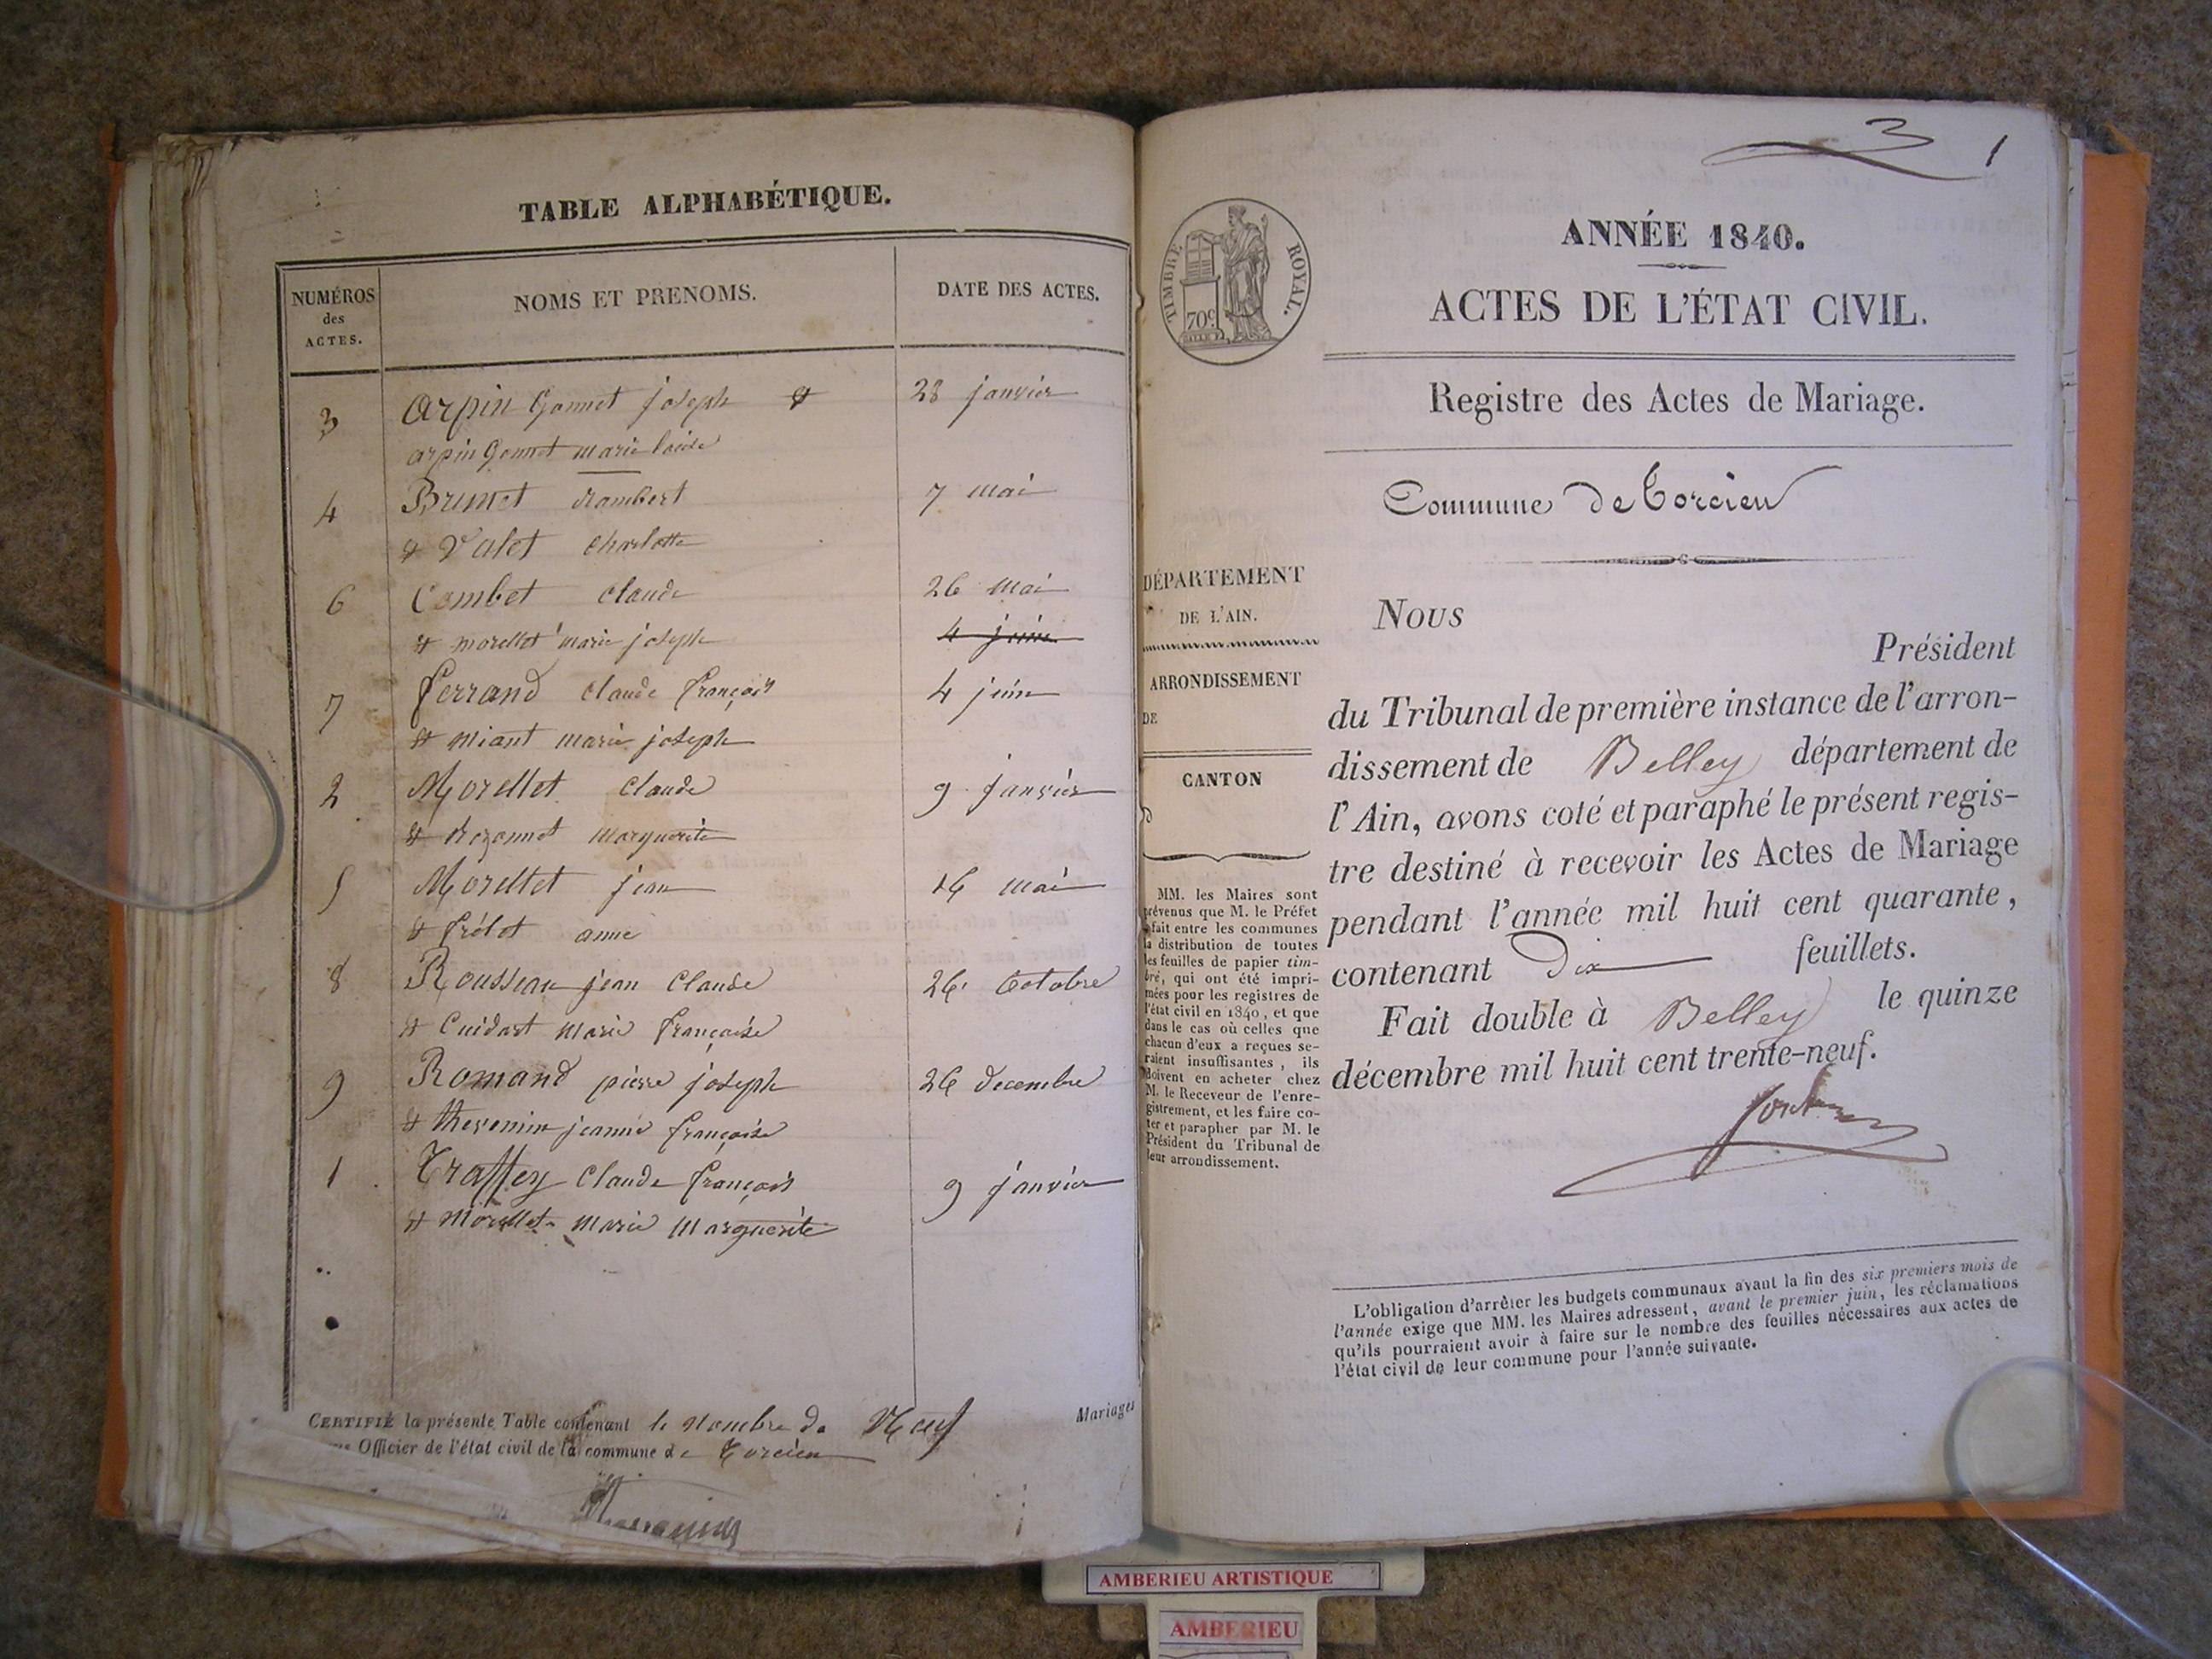 TABLE ALPHABÉTIQUE.
NUMÉROS des ACTES.
NOMS ET PRENOMS.
DATE DES ACTES.
3 Arpin Gonnet joseph & 28 janvier
arpin Gonnet marie louise
4 Brunet rambert 7 mai
& Valet charlotte
6 Combet claude 26 mai
& morellet marie joseph 4 juin
7 ferrand claude françois 4 juin
& miant marie joseph
2 Morellet claude 9 janvier
& marguerite
5 Morellet jean 16 mai
& frélet anne
8 Rousseau jean Claude 26 Octobre
& Cuidart marie françoise
9 Romand pierre joseph 26 decembre
& thevenin jeanne françoise
1 Traffey Claude françois 9 janvier
& Morellet marie Marguerite
CERTIFIÉ la présente Table contenant le nombre de Neuf Mariages
Officier de l'état civil de la commune de Torcieu
3 1
TIMBRE ROYAL.
70c
ANNÉE 1840.
ACTES DE L'ÉTAT CIVIL.
Registre des Actes de Mariage.
Commune de Torcieu
DÉPARTEMENT
DE L'AIN.
ARRONDISSEMENT
DE
CANTON
D
MM. les Maires sont
prévenus que M. le Préfet
a fait entre les communes
la distribution de toutes
les feuilles de papier tim-
bré, qui ont été impri-
mées pour les registres de
l'état civil en 1840, et que
dans le cas où celles que
chacun d'eux a reçues se-
raient insuffisantes, ils
doivent en acheter chez
M. le Receveur de l'enre-
gistrement, et les faire co-
ter et parapher par M. le
Président du Tribunal de
leur arrondissement.
Nous
Président
du Tribunal de première instance de l'arron-
dissement de Belley département de
l'Ain, avons coté et paraphé le présent regis-
tre destiné à recevoir les Actes de Mariage
pendant l'année mil huit cent quarante,
contenant Dix feuillets.
Fait double à Belley le quinze
décembre mil huit cent trente-neuf.
L'obligation d'arrêter les budgets communaux avant la fin des six premiers mois de
l'année exige que MM. les Maires adressent, avant le premier juin, les réclamations
qu'ils pourraient avoir à faire sur le nombre des feuilles nécessaires aux actes de
l'état civil de leur commune pour l'année suivante.
AMBERIEU ARTISTIQUE
AMBERIEU